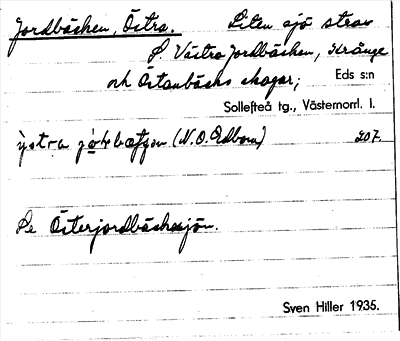 Jordbäcken, Östra. Liten sjö strax
S. Västra Jordbäcken, Krånge
och Östanbäcks skogar; Eds s:n
Sollefteå tg., Västernorrl. l.
(N.O. Edbom) 207.
Se Österjordbäckssjön.
Sven Hiller 1935.